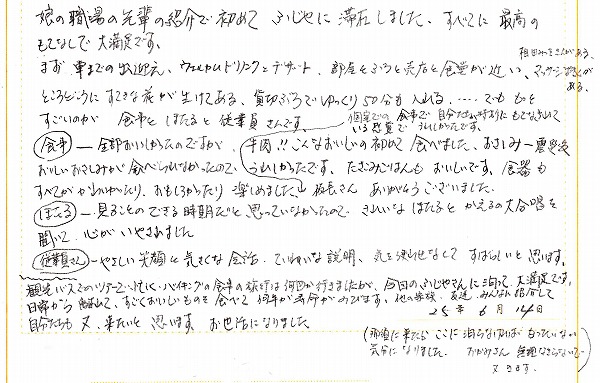 娘の職場の先輩の紹介で初めて ふじやに 滞在しました、すべてに 最高の
もてなしで 大満足です。
まず 車までの出迎え、ウェルカムドリンクとデザート、部屋とふろと売店と食堂が近い、マッサージ
ある。
ところどころに すてきな花が 生けてある、貸切ふろで ゆっくり 50分も 入れる、.... でも もっと
すごいのが 食事と ほたると 従業員さんです。
個室での食事で 自分たちだけ もてなされて
いる感覚で うれしかったです。
食事 ― 全部おいしかったのですが、
牛肉!! こんなおいしいの初めて 食べました、おさしみ―震災後
おいしいおさしみが 食べられなかったので うれしかったです、たきこみごはんも おいしいです、食器も
すべてが かわいかったり、おもしろかったり 楽しめました、 板長さん ありがとうございました。
ほたる ― 見ることのできる時期だと 思っていなかったので きれいな ほたると かえるの大合唱を
聞いて 心が いやされました
従業員さん ― やさしい笑顔と 気さくな会話、ていねいな説明、 すばらしいと 思います。
観光バスのツアーで バイキングの食事の旅行は何回か行きましたが、今回のふじやさんに泊って 大満足です。
日常から 離れて、すごくおいしいものを 食べて 何年か寿命がのびます、他の家族、友達、みんなに紹介して
自分たちも 又、来たいと 思います お世話になりました
25年 6月 14日
(那須に来たら ここに 泊らなければ もったいない
気分に なりました. おかみさん 無理なさらないで